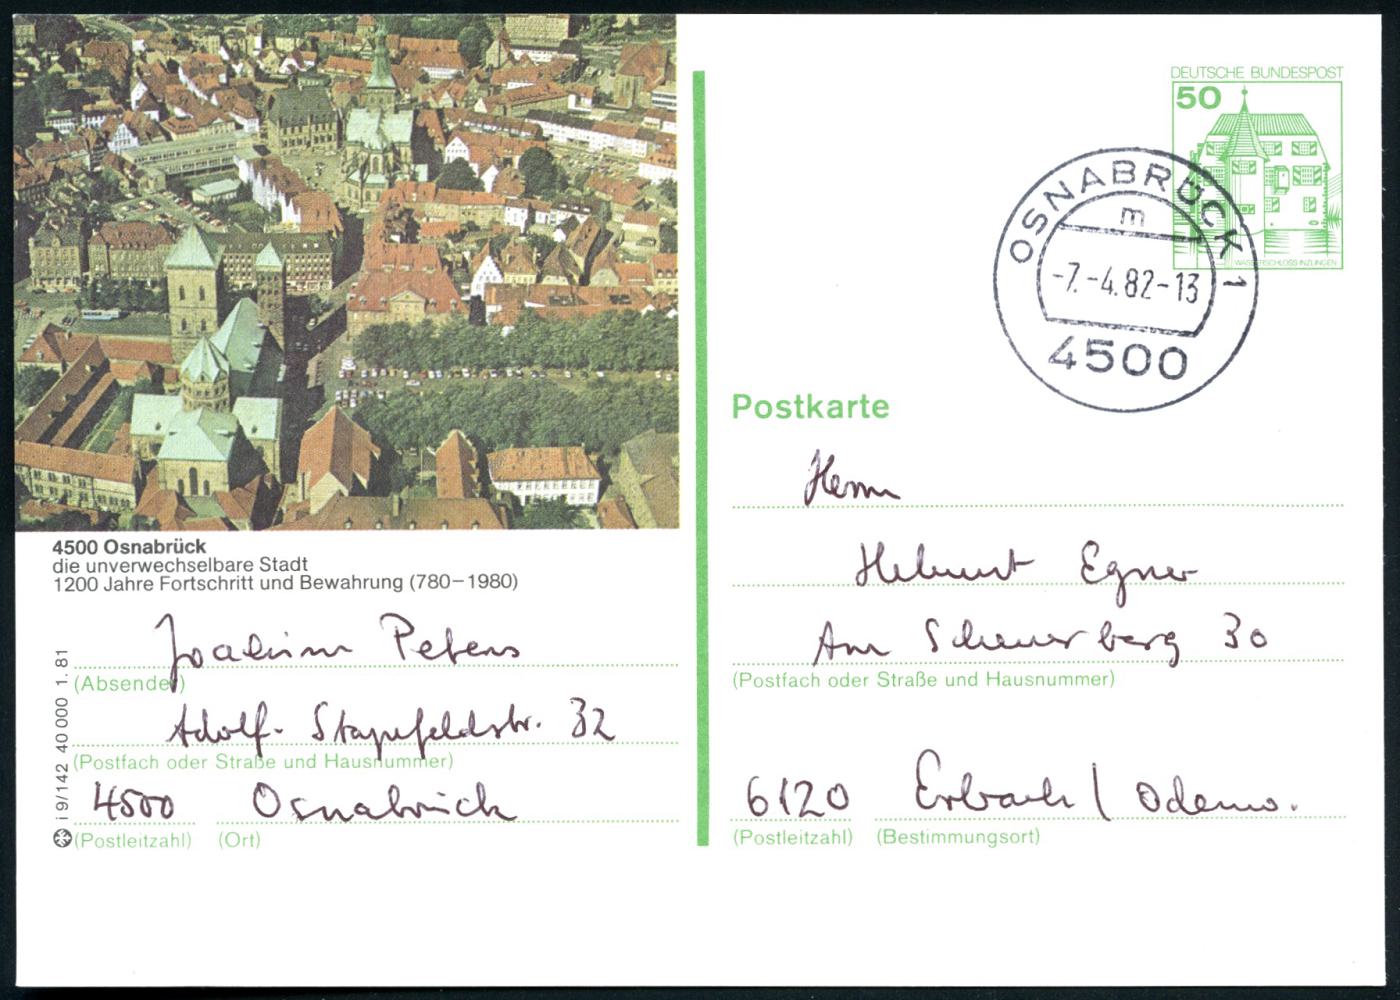 DEUTSCHE BUNDESPOST
50
WASSERSCHLOSS INZLINGEN
OSNABRÜCK 1
m
-7.-4.82-13
4500
Postkarte
Herrn
Helmut Egner
Am Scheuerberg 30
(Postfach oder Straße und Hausnummer)
6120 Erbach / Odenw.
(Postleitzahl) (Bestimmungsort)
4500 Osnabrück
die unverwechselbare Stadt
1200 Jahre Fortschritt und Bewahrung (780–1980)
Joachim Peters
(Absender)
Adolf-Staperfeldstr. 32
(Postfach oder Straße und Hausnummer)
4500 Osnabrück
(Postleitzahl) (Ort)
i 9/142 40 000 1.81